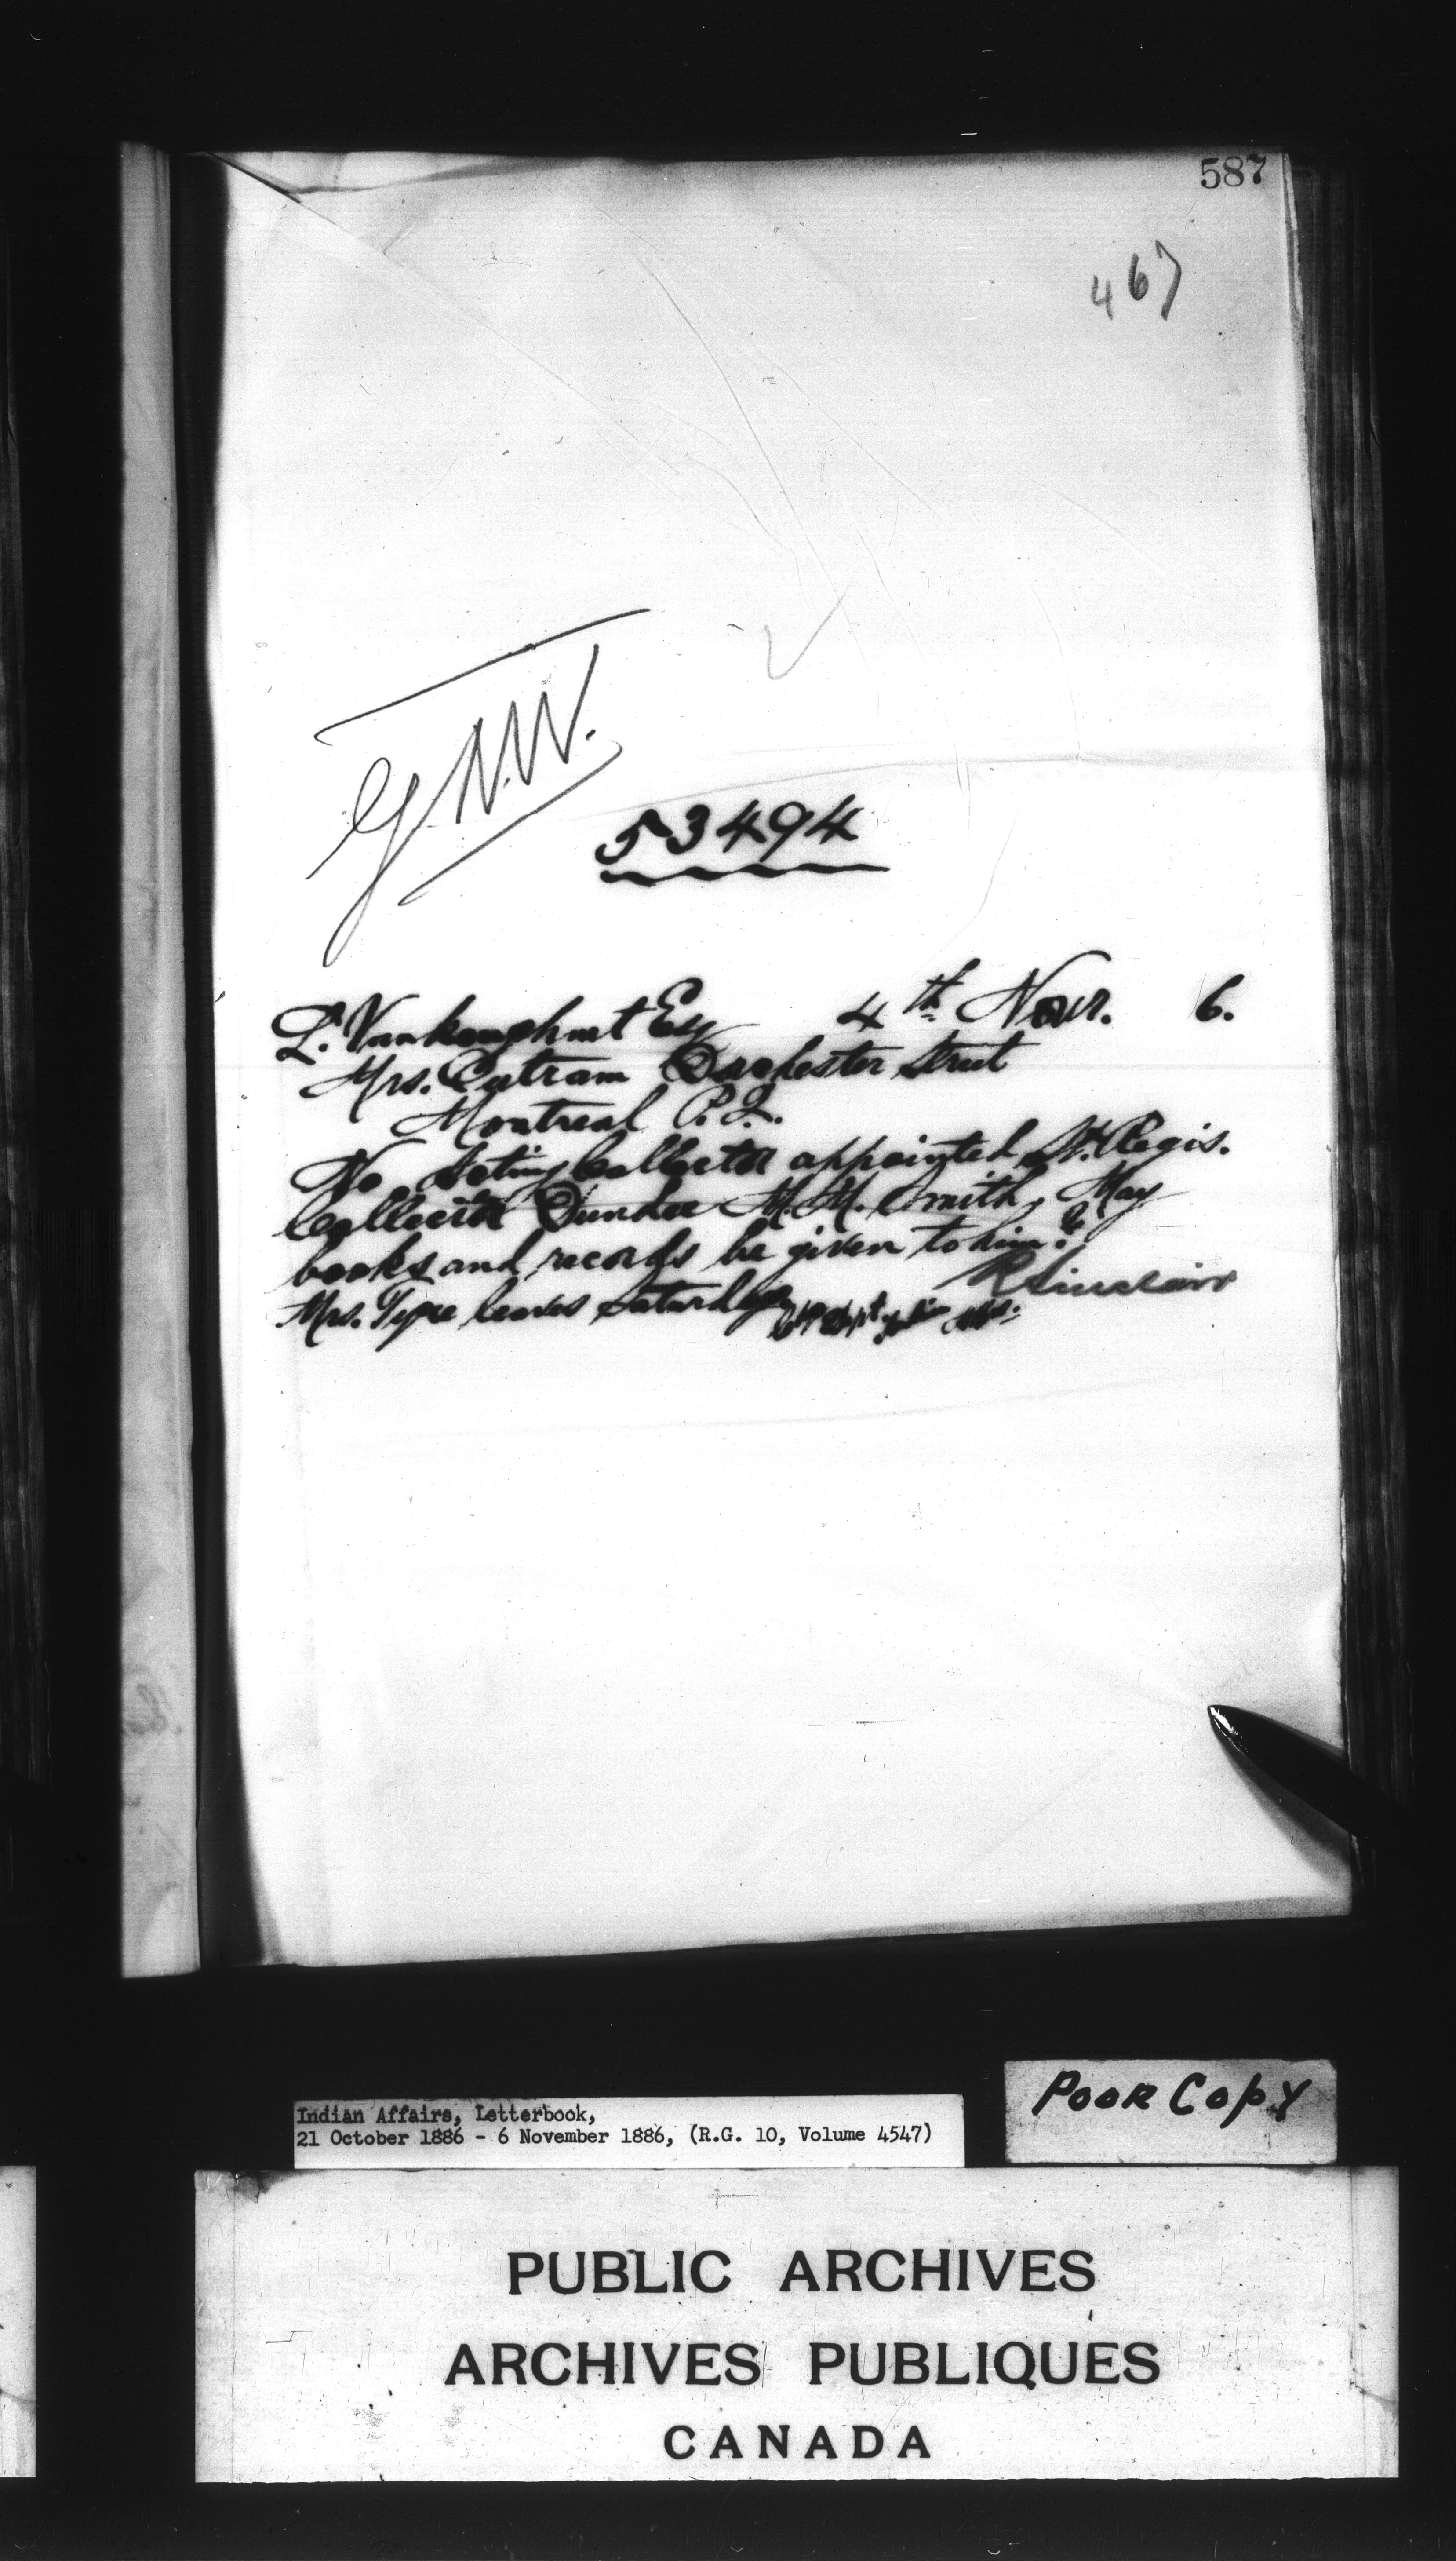 587
467
G.N.W.
53494
L. Vankoughnet Esq 4th Novr. 6.
Mrs. Outram Dorchester Street
Montreal P.Q.
No Acting Collector appointed St. Regis.
Collector Dundee M. M. Smith, May
books and records be given to him?
R Sinclair
Mrs. Tyre leaves Saturday
Indian Affairs, Letterbook,
21 October 1886 - 6 November 1886, (R.G. 10, Volume 4547)
POOR COPY
PUBLIC ARCHIVES
ARCHIVES PUBLIQUES
CANADA